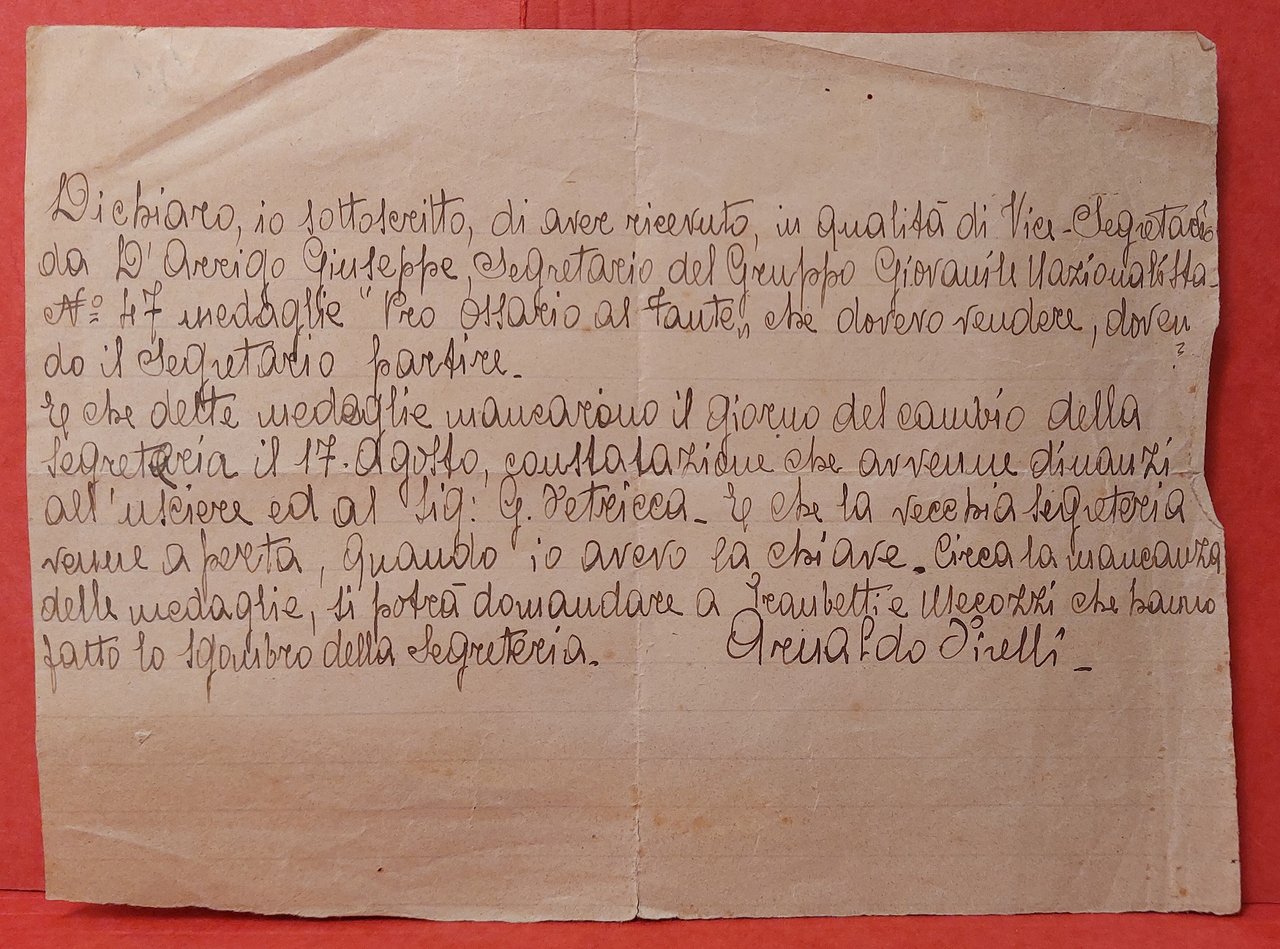 Dichiaro, io sottoscritto, di aver ricevuto, in qualità di Vice-Segretario
da D'Arrigo Giuseppe, Segretario del Gruppo Giovanile Nazionalista
Nº 47 medaglie "Pro Ossario al Fante„ che dovevo vendere, doven
do il Segretario partire.
E che dette medaglie mancarono il giorno del cambio della
Segreteria il 17. Agosto, constatazione che avvenne dinanzi
all'usciere ed al Sig: G. Petricca - E che la vecchia segreteria
venne aperta, quando io avevo la chiave. Circa la mancanza
delle medaglie, si potrà domandare a Trambetti e Mecozzi che hanno
fatto lo sgombro della Segreteria. Arnaldo Pirelli -